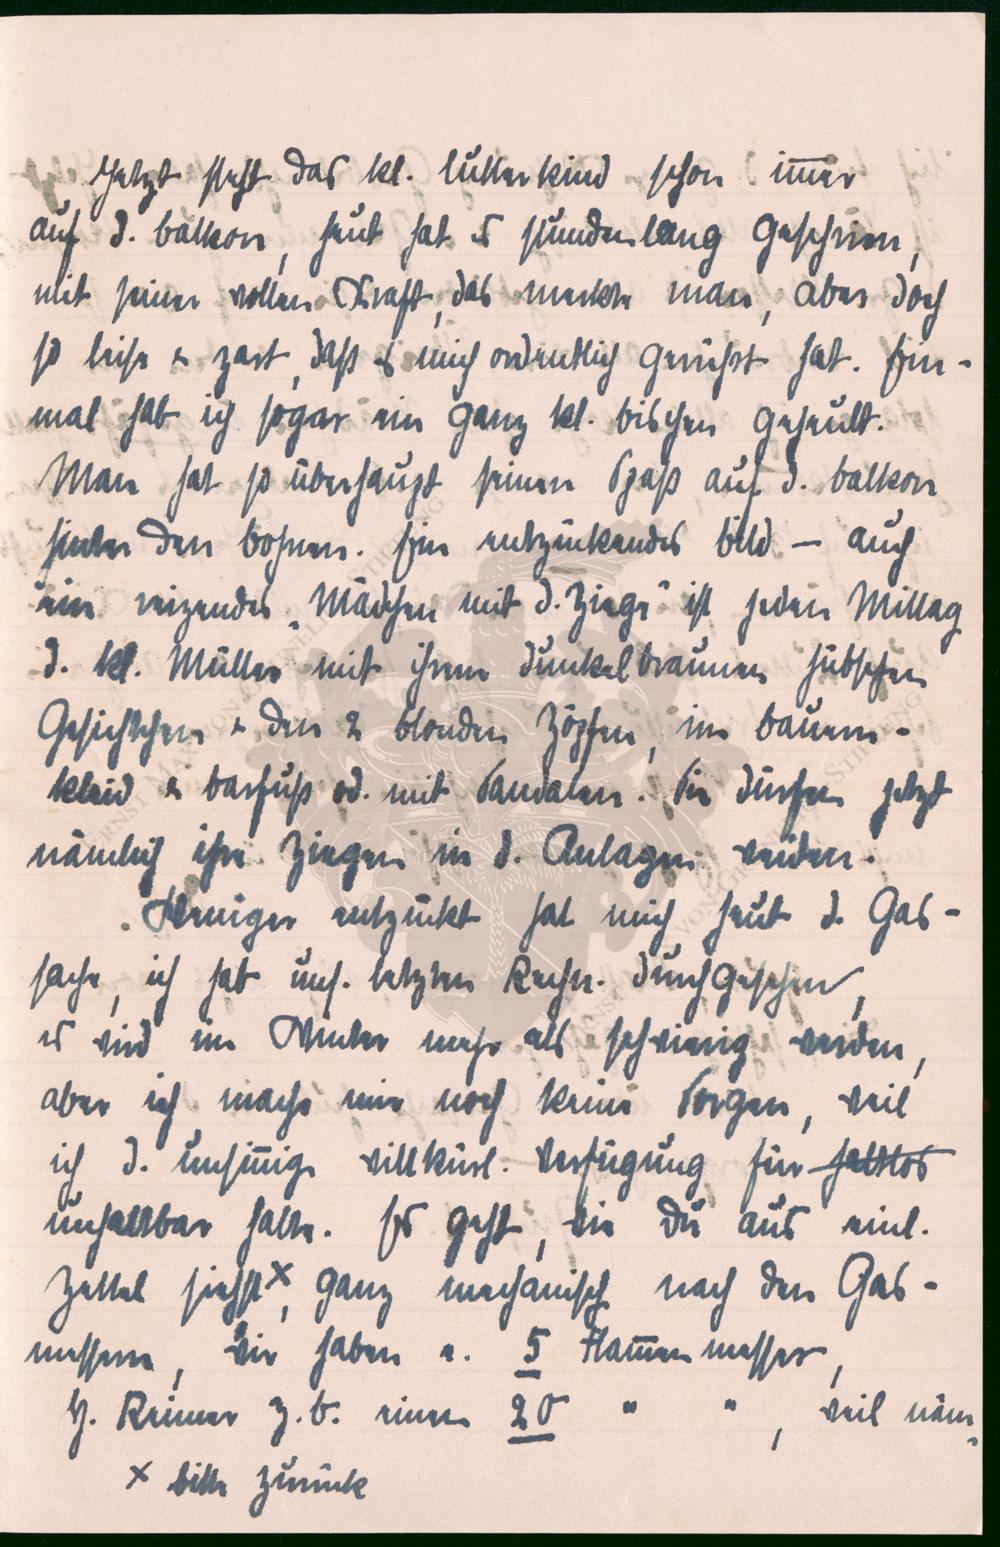 Jetzt steht das kl. Lutterkind schon immer
auf d. Balkon, heut hat es stundenlang geschrien,
mit seiner vollen Kraft, das merkte man, aber doch
so leise & zart, daß es mich ordentlich gerührt hat. Ein-
mal hab ich sogar ein ganz kl. bischen geheult.
Man hat so überhaupt seinen Spaß auf d. Balkon
hinter den Bohnen. Ein entzückendes Bild – auch
ein reizendes „Mädchen mit d. Ziege" ist jeden Mittag
d. kl. Müller mit ihrem dunkelbraunen hübschen
Gesichtchen & den 2 blonden Zöpfen, im Bauern-
kleid & barfuß od. mit Sandalen. Sie dürfen jetzt
nämlich ihre Ziegen in d. Anlagen weiden.
Weniger entzückt hat mich heut d. Gas-
sache, ich hab uns. letzten Rechn. durchgesehen,
es wird im Winter mehr als schwierig werden,
aber ich mache mir noch keine Sorgen, weil
ich d. unsinnige willkürl. Verfügung für haltlos
unhaltbar halte. Es geht, wie Du aus einl.
Zettel siehst x, ganz mechanisch nach den Gas-
messern, wir haben e. 5 Flammenmesser,
H. Reimer z.B. einen 20 " ", weil näm-
x bitte zurück